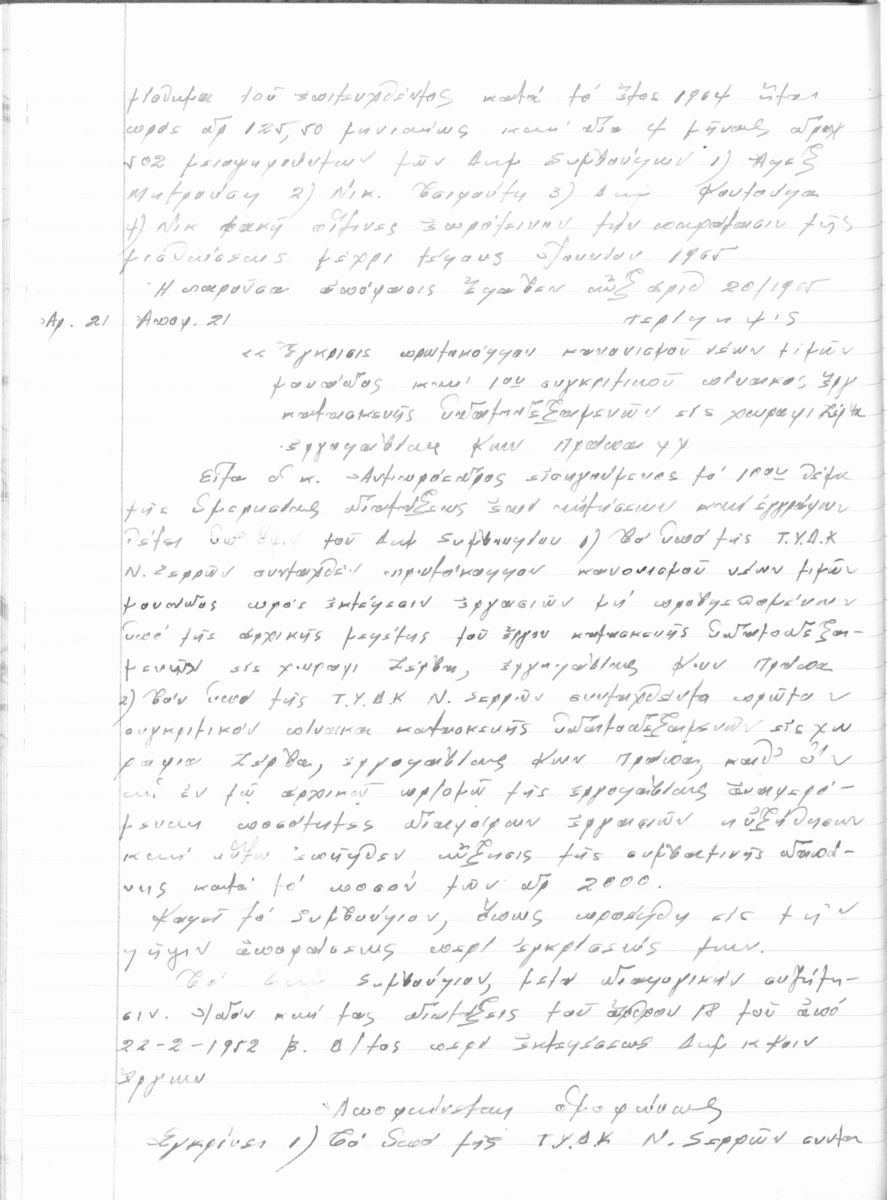 μίσθωμα τοῦ ἐπιτευχθέντος κατά τό ἔτος 1964 ἤτοι
πρός δρ 125,50 μηνιαίως καί διά 4 μῆνας δραχ
502 μειοψηφούντων τῶν Δημ Συμβούλων 1) Αλεξ
Μητρούση 2) Νικ. Τσιφούτη 3) Δημ Φουντούλα
4) Νικ Φακῆ οἵτινες ἐπρότεινον τήν παράτασιν τῆς
μισθώσεως μέχρι τέλους Ἰουνίου 1965
Ἡ παροῦσα ἀπόφασις ἔλαβεν αὔξ ἀριθ 20/1965
Αρ. 21 Αποφ. 21 περίληψις
«Ἔγκρισις πρωτοκόλλου κανονισμοῦ νέων τιμῶν
μονάδος καί 1ου συγκριτικοῦ πίνακος ἔργ
κατασκευῆς ὑδατοδεξαμενῶν εἰς χωράφι Ζέρβα
ἐργολαβίας Κων Πράπα
Εἶτα ὁ κ. Ἀντιπρόεδρος εἰσηγούμενος τό 1ον θέμα
τῆς ἡμερησίας διατάξεως ἐπί αἰτήσεων καί ἐγγράφων
θέτει ὑπ' ὄψιν τοῦ Δημ Συμβουλίου 1) Τό ὑπό τῆς Τ.Υ.Δ.Κ
Ν. Σερρῶν συνταχθέν πρωτόκολλον κανονισμοῦ νέων τιμῶν
μονάδος πρός ἐκτέλεσιν ἐργασιῶν μή προβλεπομένων
ὑπό τῆς ἀρχικῆς μελέτης τοῦ ἔργου κατασκευῆς ὑδατοδεξα-
μενῶν εἰς χωράφι Ζέρβα, ἐργολαβίας Κων Πράπα
2) Τόν ὑπό τῆς Τ.Υ.Δ.Κ Ν. Σερρῶν συνταχθέντα πρῶτον
συγκριτικόν πίνακα κατασκευῆς ὑδατοδεξαμενῶν εἰς χω
ράφια Ζέρβα, ἐργολαβίας Κων Πράπα, καθ' ὅν
αἱ ἐν τῷ ἀρχικῷ τῆς ἐργολαβίας ἀναφερό-
μεναι ποσότητες διαφόρων ἐργασιῶν ηὐξήθησαν
καί οὕτω ἐπῆλθεν αὔξησις τῆς συμβατικῆς δαπά-
νης κατά τό ποσόν τῶν δρ 2000.
Καλεῖ τό Συμβούλιον, ὅπως προέλθη εἰς τήν
λῆψιν ἀποφάσεως περί ἐγκρίσεώς των.
Τό Συμβούλιον, μετά διαλογικήν συζήτη-
σιν. Ἰδόν καί τάς διατάξεις τοῦ ἄρθρου 18 τοῦ ἀπό
22-2-1952 Β. Δ/τος περί ἐκτελέσεως Δημ κ Κοιν
ἔργων
Ἀποφαίνεται ὁμοφώνως
Ἐγκρίνει 1) Τό ὑπό τῆς Τ.Υ.Δ.Κ Ν. Σερρῶν συντα